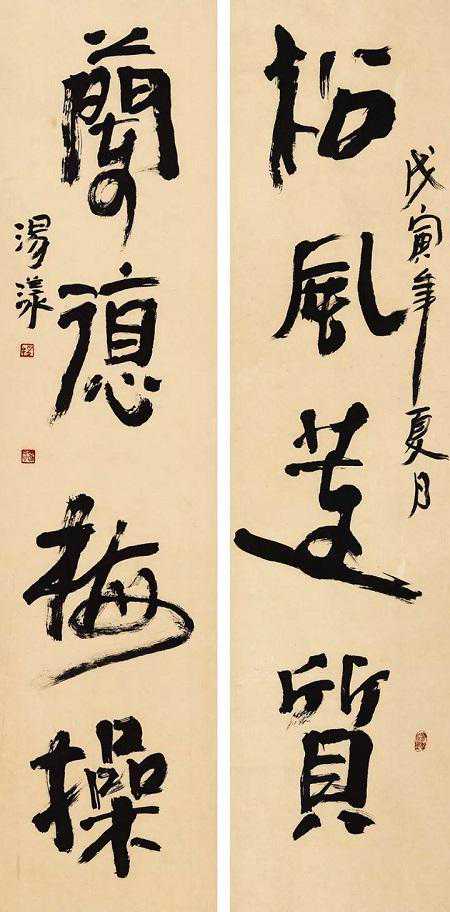 戊寅年夏月
松風蓮質
蘭德梅操
湯漾